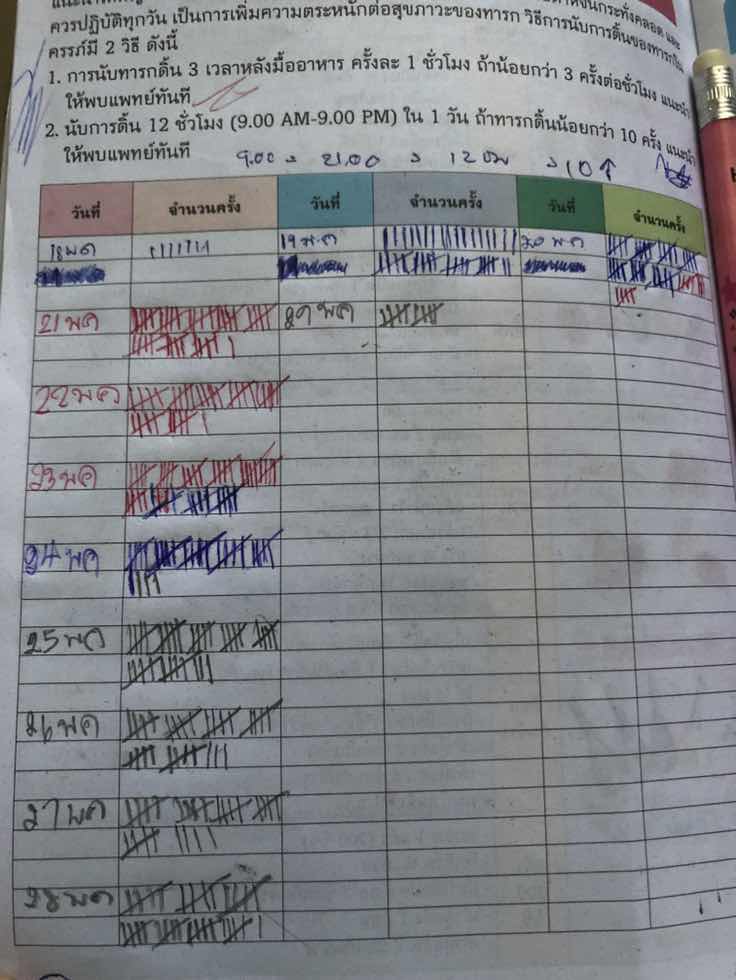 ควรปฏิบัติทุกวัน เป็นการเพิ่มความตระหนักต่อสุขภาวะของทารก วิธีการนับการดิ้นของทารกใน
ครรภ์มี 2 วิธี ดังนี้
1. การนับทารกดิ้น 3 เวลาหลังมื้ออาหาร ครั้งละ 1 ชั่วโมง ถ้าน้อยกว่า 3 ครั้งต่อชั่วโมง แนะนำ
ให้พบแพทย์ทันที
2. นับการดิ้น 12 ชั่วโมง (9.00 AM-9.00 PM) ใน 1 วัน ถ้าทารกดิ้นน้อยกว่า 10 ครั้ง แนะนำ
ให้พบแพทย์ทันที
9.00 21.00 12 10↑
วันที่ จำนวนครั้ง วันที่ จำนวนครั้ง วันที่ จำนวนครั้ง
18 พค 19 พ.ค 20 พค
21 พค 29 พค
22 พค
23 พค
24 พค
25 พค
26 พค
27 พค
28 พค